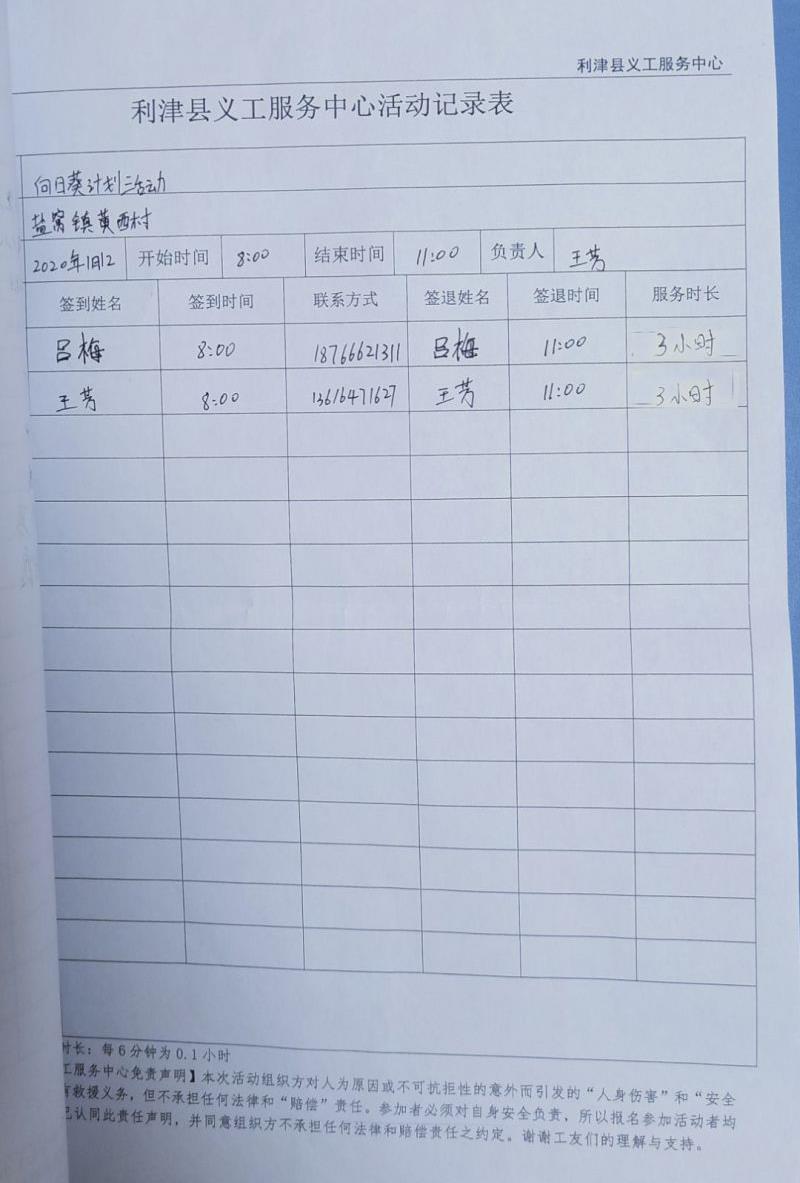 利津县义工服务中心
利津县义工服务中心活动记录表
向日葵计划三活动
盐窝镇黄西村
2020年1月12 开始时间 8:00 结束时间 11:00 负责人 王芳
签到姓名 签到时间 联系方式 签退姓名 签退时间 服务时长
吕梅 8:00 18766621311 吕梅 11:00 3小时
王芳 8:00 13616471627 王芳 11:00 3小时
时长：每6分钟为0.1小时
工服务中心免责声明】本次活动组织方对人为原因或不可抗拒性的意外而引发的“人身伤害”和“安全
救援义务，但不承担任何法律和“赔偿”责任。参加者必须对自身安全负责，所以报名参加活动者均
已认同此责任声明，并同意组织方不承担任何法律和赔偿责任之约定。谢谢工友们的理解与支持。